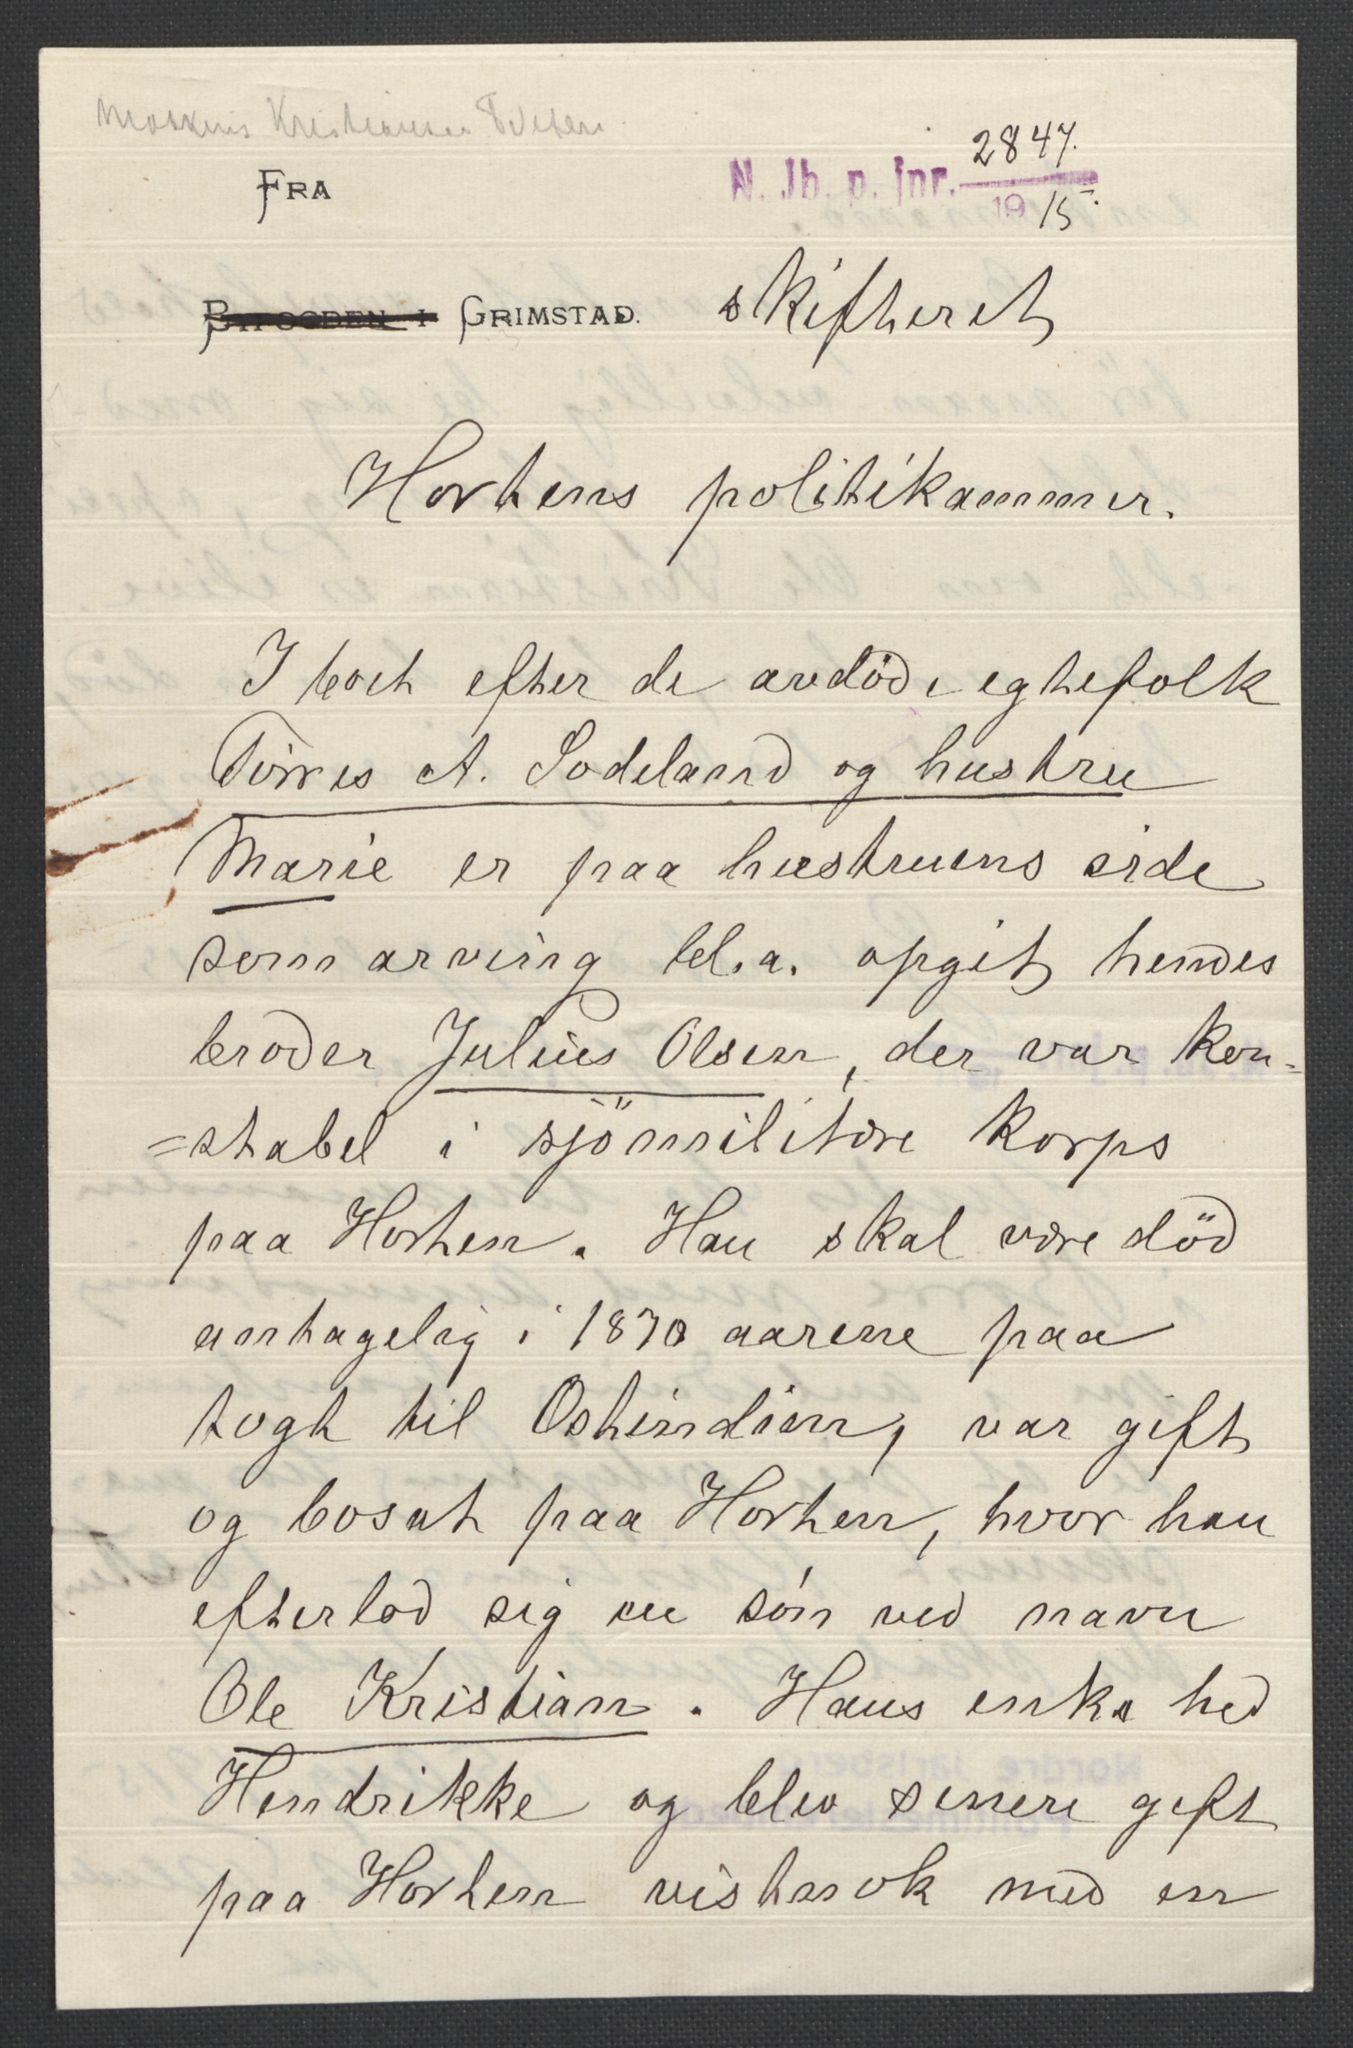 Kristiansen
N. Jb. p. jnr. 2847.
1915.
FRA
BYFOGDEN I GRIMSTAD. skifteret
Hortens politikammer.
I boet efter de avdöde egtefolk
Törres A. Sodeland og hustru
Marie er paa hustruens side
som arving bl.a. opgit hendes
broder Julius Olsen, der var kon=
=stabel i sjömilitære korps
paa Horten. Han skal være död
antagelig i 1870 aarene paa
togt til Ostindien, var gift
og bosat paa Horten, hvor han
efterlod sig en sön ved navn
Ole Kristian. Hans enke hed
Hendrikke og blev senere gift
paa Horten vistnok med en